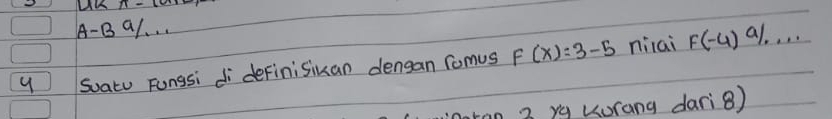 A-B a/...
4 Suatu Fungsi di definisikan dengan rumus F(x)=3-5 nilai F(-4) a/....
2 yg kurang dari 8)